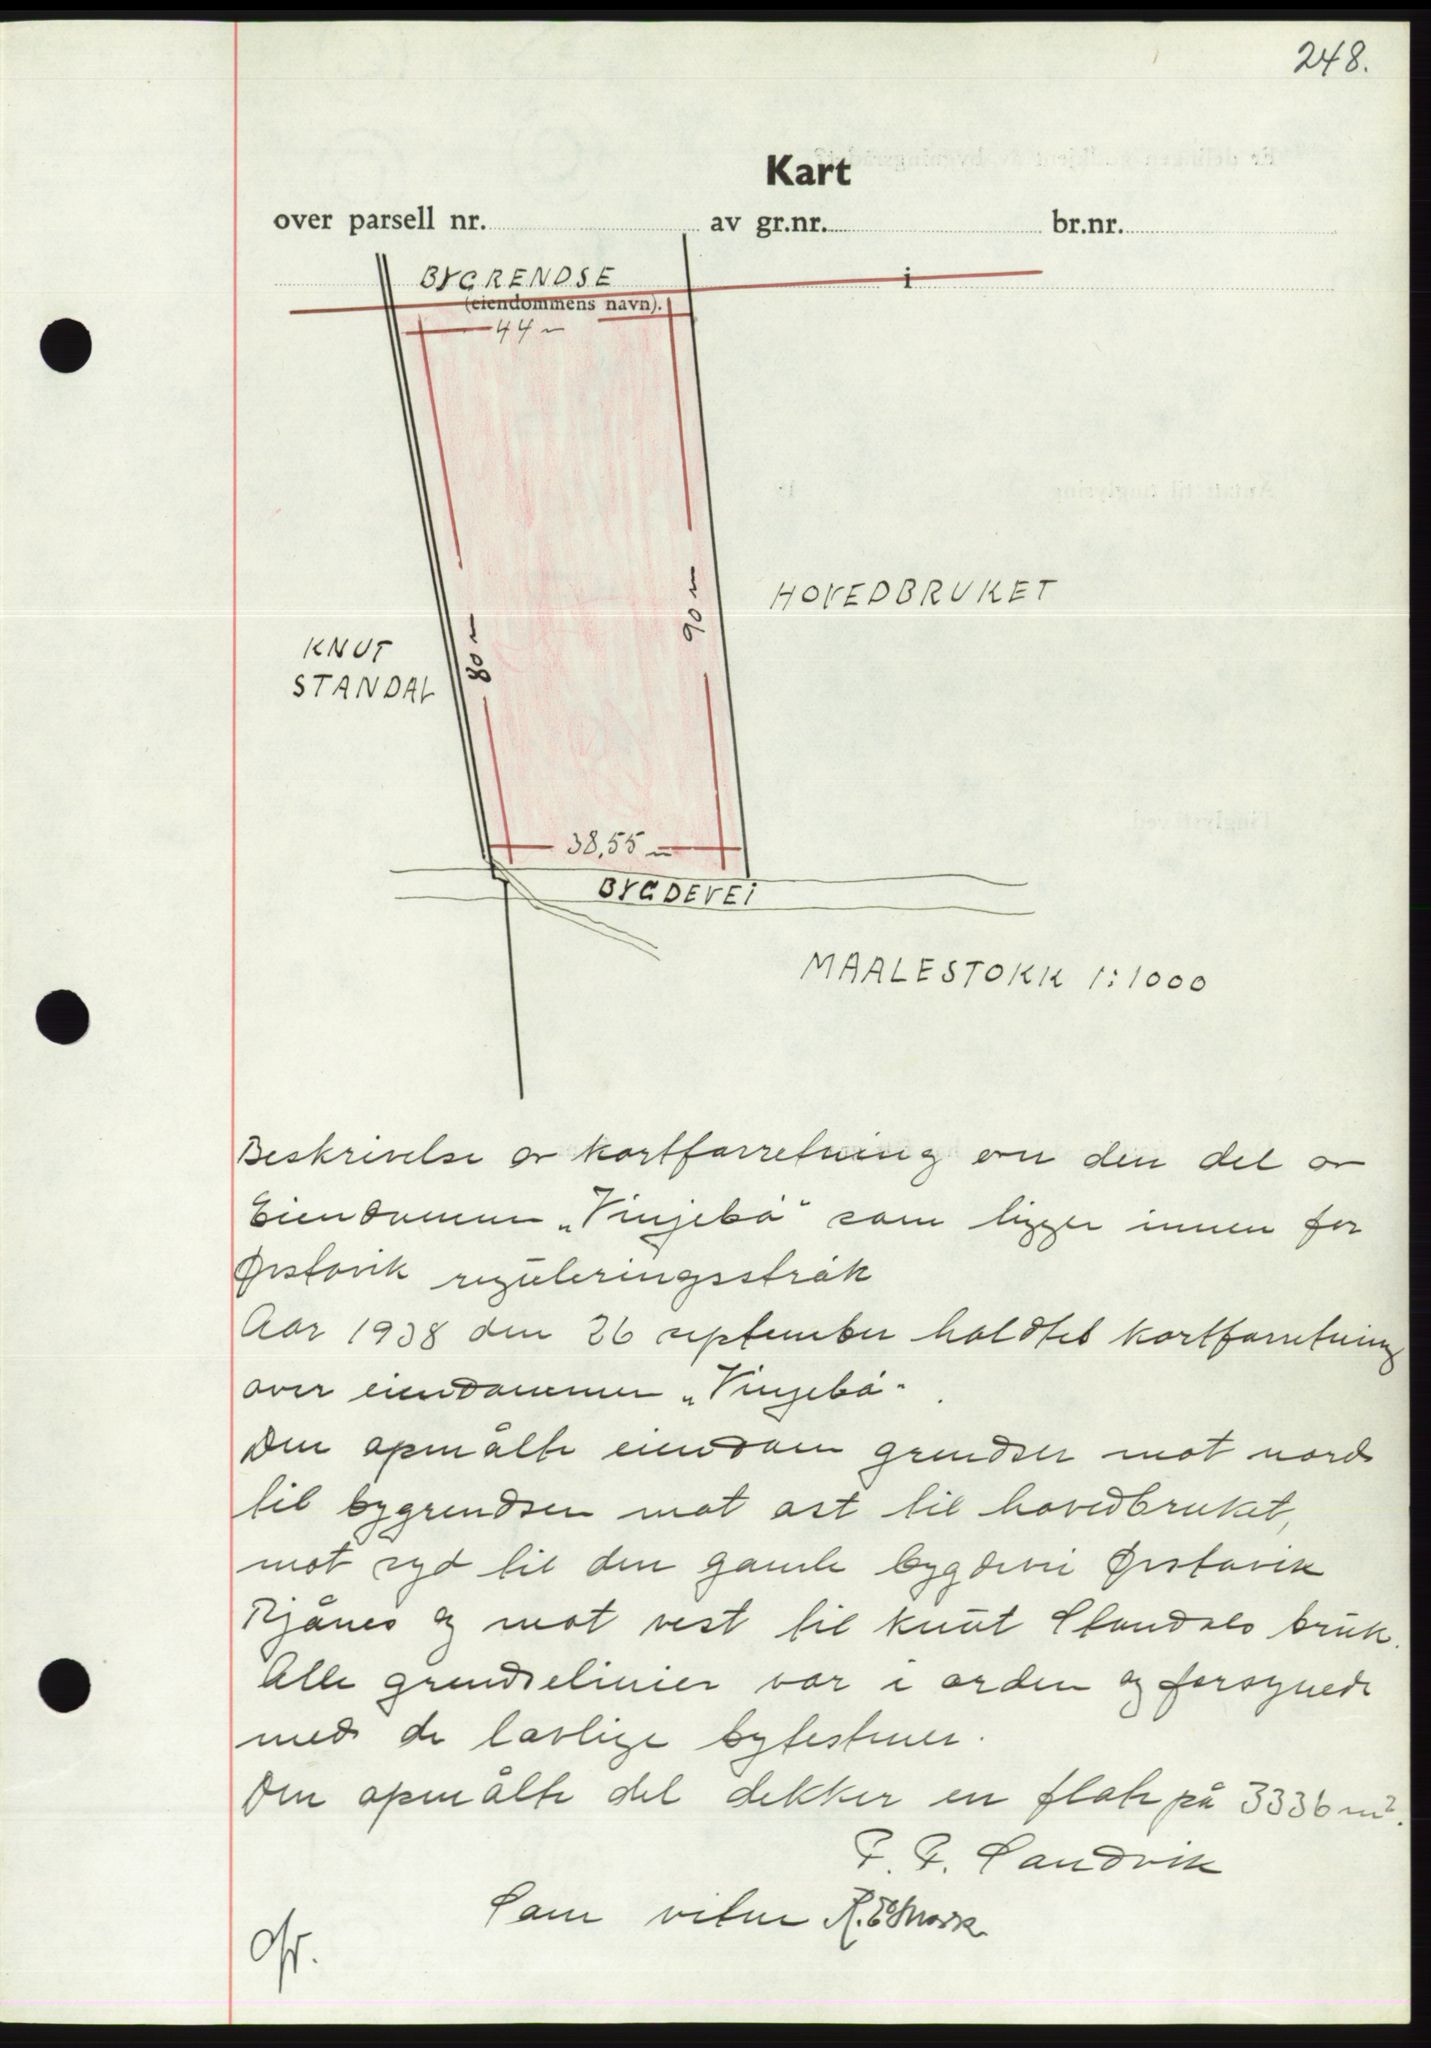 248.
Kart
over parsell nr. av gr.nr. br.nr.
BYGRENDSE i
(eiendommens navn).
44 m
HOVEDBRUKET
90 m
KNUT
STANDAL
80 m
38,55 m
BYGDEVEI
MAALESTOKK 1:1000
Beskrivelse av kartforretning over den del av
Eiendommen „Vinjebö“ som ligger innen for
Ørstavik reguleringsstrøk
Aar 1938 den 26 september holdtes kartforretning
over eiendommen „Vinjebö“.
Den opmålte eiendom grendser mot nord
til bygrendsen mot ost til hovedbruket,
mot syd til den gamle bygdevei Ørstavik
Rjånes og mot vest til Knut Standals bruk.
Alle grendselinier var i orden og forsynede
med de lovlige bytestener.
Den opmålte del dekker en flate på 3336 m².
P. P. Sandvik
Som vitne R. E. Mork